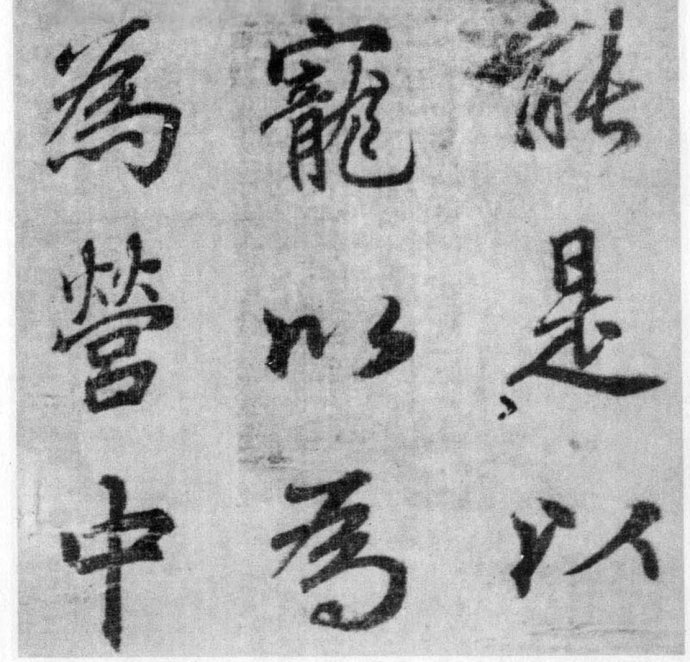 能是以
寵以為
為營中